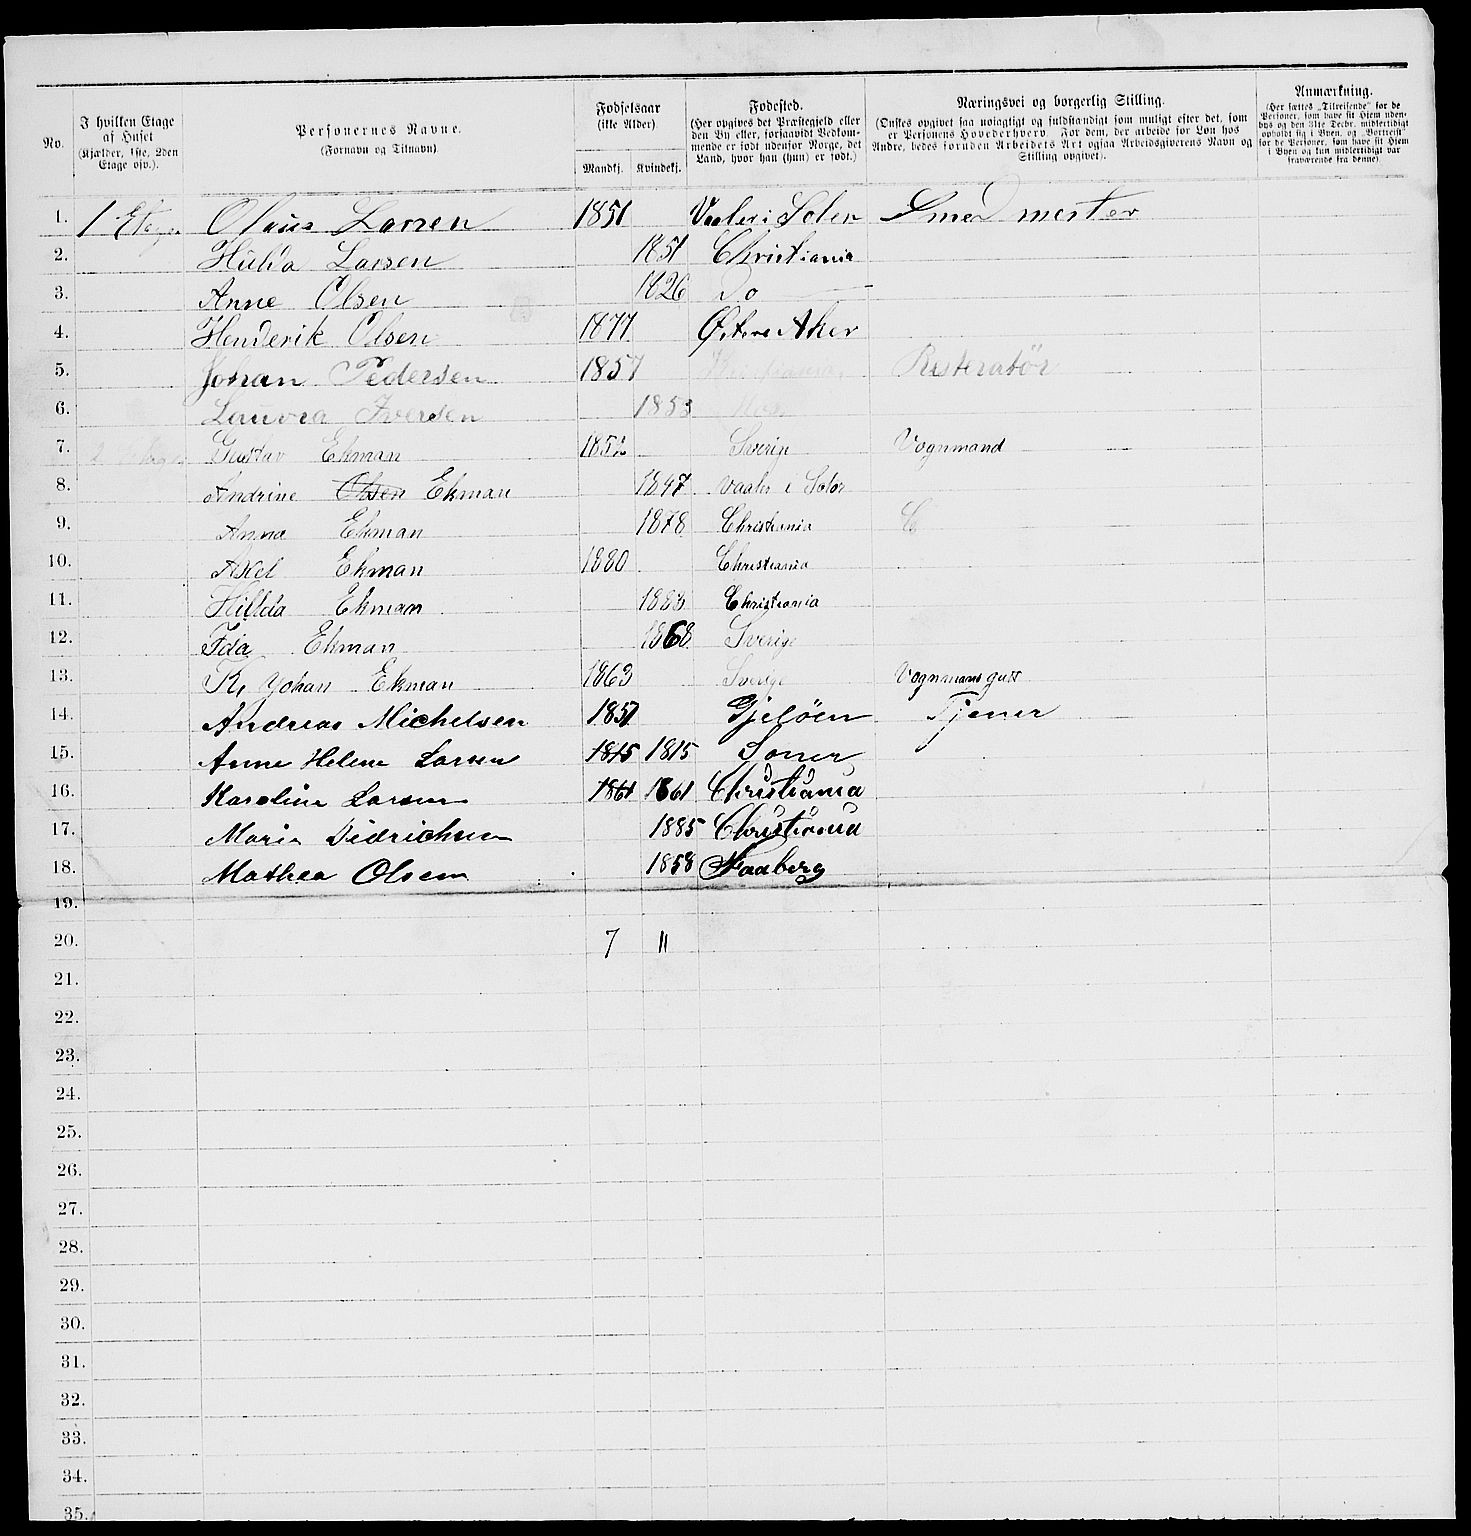 No.
I hvilken Etage af Huset (Kjælder, 1ste, 2den Etage osv.).
Personernes Navne. (Fornavn og Tilnavn)
Fødselsaar (ikke Alder) Mandkj. Kvindekj.
Fødested. (Her opgives det Præstegjeld eller den By eller, forsaavidt Vedkommende er født udenfor Norge, det Land, hvor han (hun) er født.)
Næringsvei og borgerlig Stilling. (Ønskes opgivet saa nøiagtigt og fuldstændigt som muligt efter det, som er Personens Hovederhverv. For dem, der arbeide for Løn hos Andre, bedes foruden Arbeidets Art ogsaa Arbeidsgiverens Navn og Stilling opgivet).
Anmærkning. (Her sættes „Tilreisende“ for de Personer, som have sit Hjem udenbys og den 31te Decbr. midlertidigt opholdt sig i Byen, og „Bortreist“ for de Personer, som have sit Hjem i Byen og kun midlertidigt var fraværende fra denne)
1. 1 Etage Olaus Larsen 1851 Vaaler i Soler Smed mester
2. Hulda Larsen 1851 Christiania
3. Anne Olsen 1826 Do
4. Henderik Olsen 1877 Østre Aker
5. Johan Pedersen 1857 Restoratør
6. Lauvra Iversen 1853
7. 2 Etage Gustav Ekman 1852 Sverige Vognmand
8. Andrine Olsen Ekman 1847 Vaaler i Solør
9. Anna Ekman 1878 Christiania
10. Axel Ekman 1880 Christiania
11. Hillda Ekman 1888 Christiania
12. Ida Ekman 1868 Sverige
13. K. Johan Ekman 1863 Sverige Vognmans gutt
14. Andreas Michelsen 1857 Gjeløen Tjener
15. Anne Helene Larsen 1815 1815 Soner
16. Karoline Larsen 1861 1861 Christiania
17. Marie Didrichsen 1885 Christiania
18. Mathea Olsen 1858 Faaberg
19.
20. 7 11
21.
22.
23.
24.
25.
26.
27.
28.
29.
30.
31.
32.
33.
34.
35.